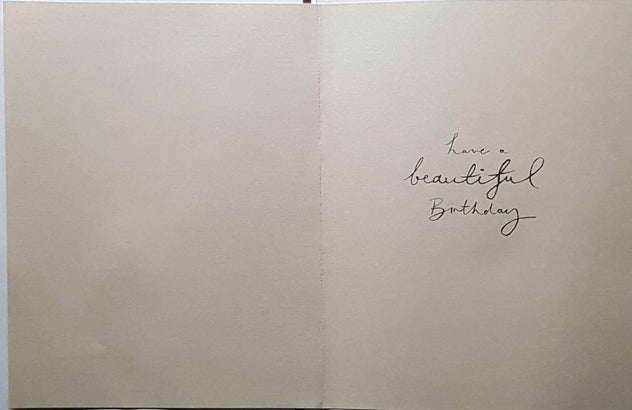 have a
beautiful
Birthday